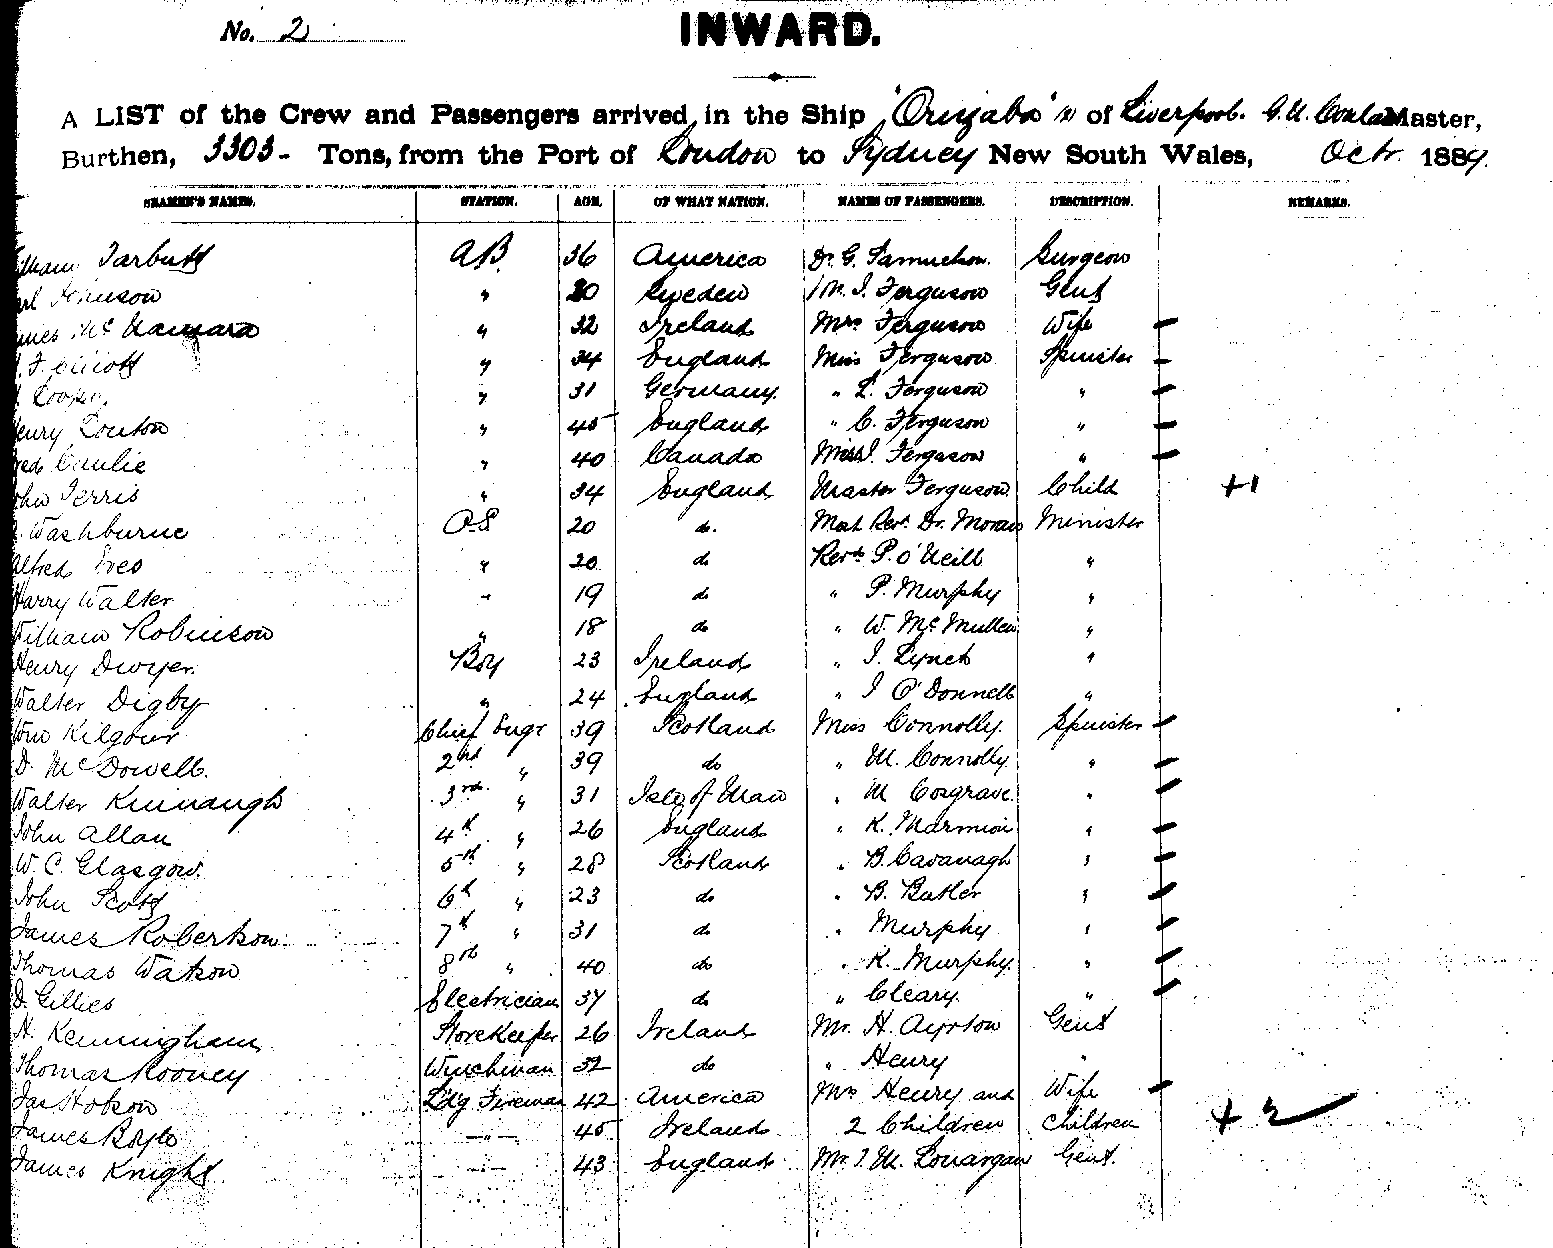 No. 2
INWARD.
A LIST of the Crew and Passengers arrived in the Ship "Orizaba" of Liverpool. G. N. Master,
Burthen, 3303 - Tons, from the Port of London to Sydney New South Wales, Octr. 1889.
SEAMEN'S NAMES. STATION. AGE. OF WHAT NATION. NAMES OF PASSENGERS. DESCRIPTION. REMARKS.
Tarbutt AB 36 America Dr. G. Samuelson. Surgeon
Johnson " 20 Sweden Mr. J. Ferguson Gent
McNamara " 32 Ireland Mrs Ferguson Wife
" 34 England Miss Ferguson Spinster
Cooper. " 31 Germany. " L. Ferguson "
Henry " 45 England " C. Ferguson "
" 40 Canada Miss J. Ferguson "
John Ferris " 34 England Master Ferguson Child +1
Washburne OS 20 do. Most Revd. Dr. Moran Minister
Alfred Ives " 20 do Revd. P. O'Neill "
Harry Walter " 19 do " P. Murphy "
William Robinson " 18 do " W. McMullen "
Henry Dwyer. Boy 23 Ireland " J. Lynch "
Walter Digby " 24 England " J O'Donnell "
Wm Kilgour Chief Engr 39 Scotland Miss Connolly. Spinster
D. McDowell. 2nd " 39 do " M. Connolly "
Walter Kinnaugh 3rd. " 31 Isle of Man " M Cosgrave. "
John Allan 4th " 26 England " K. Marmion "
W. C. Glasgow. 5th " 28 Scotland " B. Cavanagh "
John Scott 6th " 23 do " B. Butler "
James Robertson. 7th " 31 do " Murphy "
Thomas Watson 8th " 40 do " K. Murphy. "
D. Gillies Electrician 37 do " Cleary. "
H. Kenningham Storekeeper 26 Ireland Mr. H. Ayrton Gent
Thomas Rooney Winchman 32 do " Henry "
Jas Hobson Ldg Fireman 42 America Mrs Henry and Wife
James Boyle -"- 45 Ireland 2 Children Children + 2
James Knight -"- 43 England Mr. J. M. Lonargan Gent.